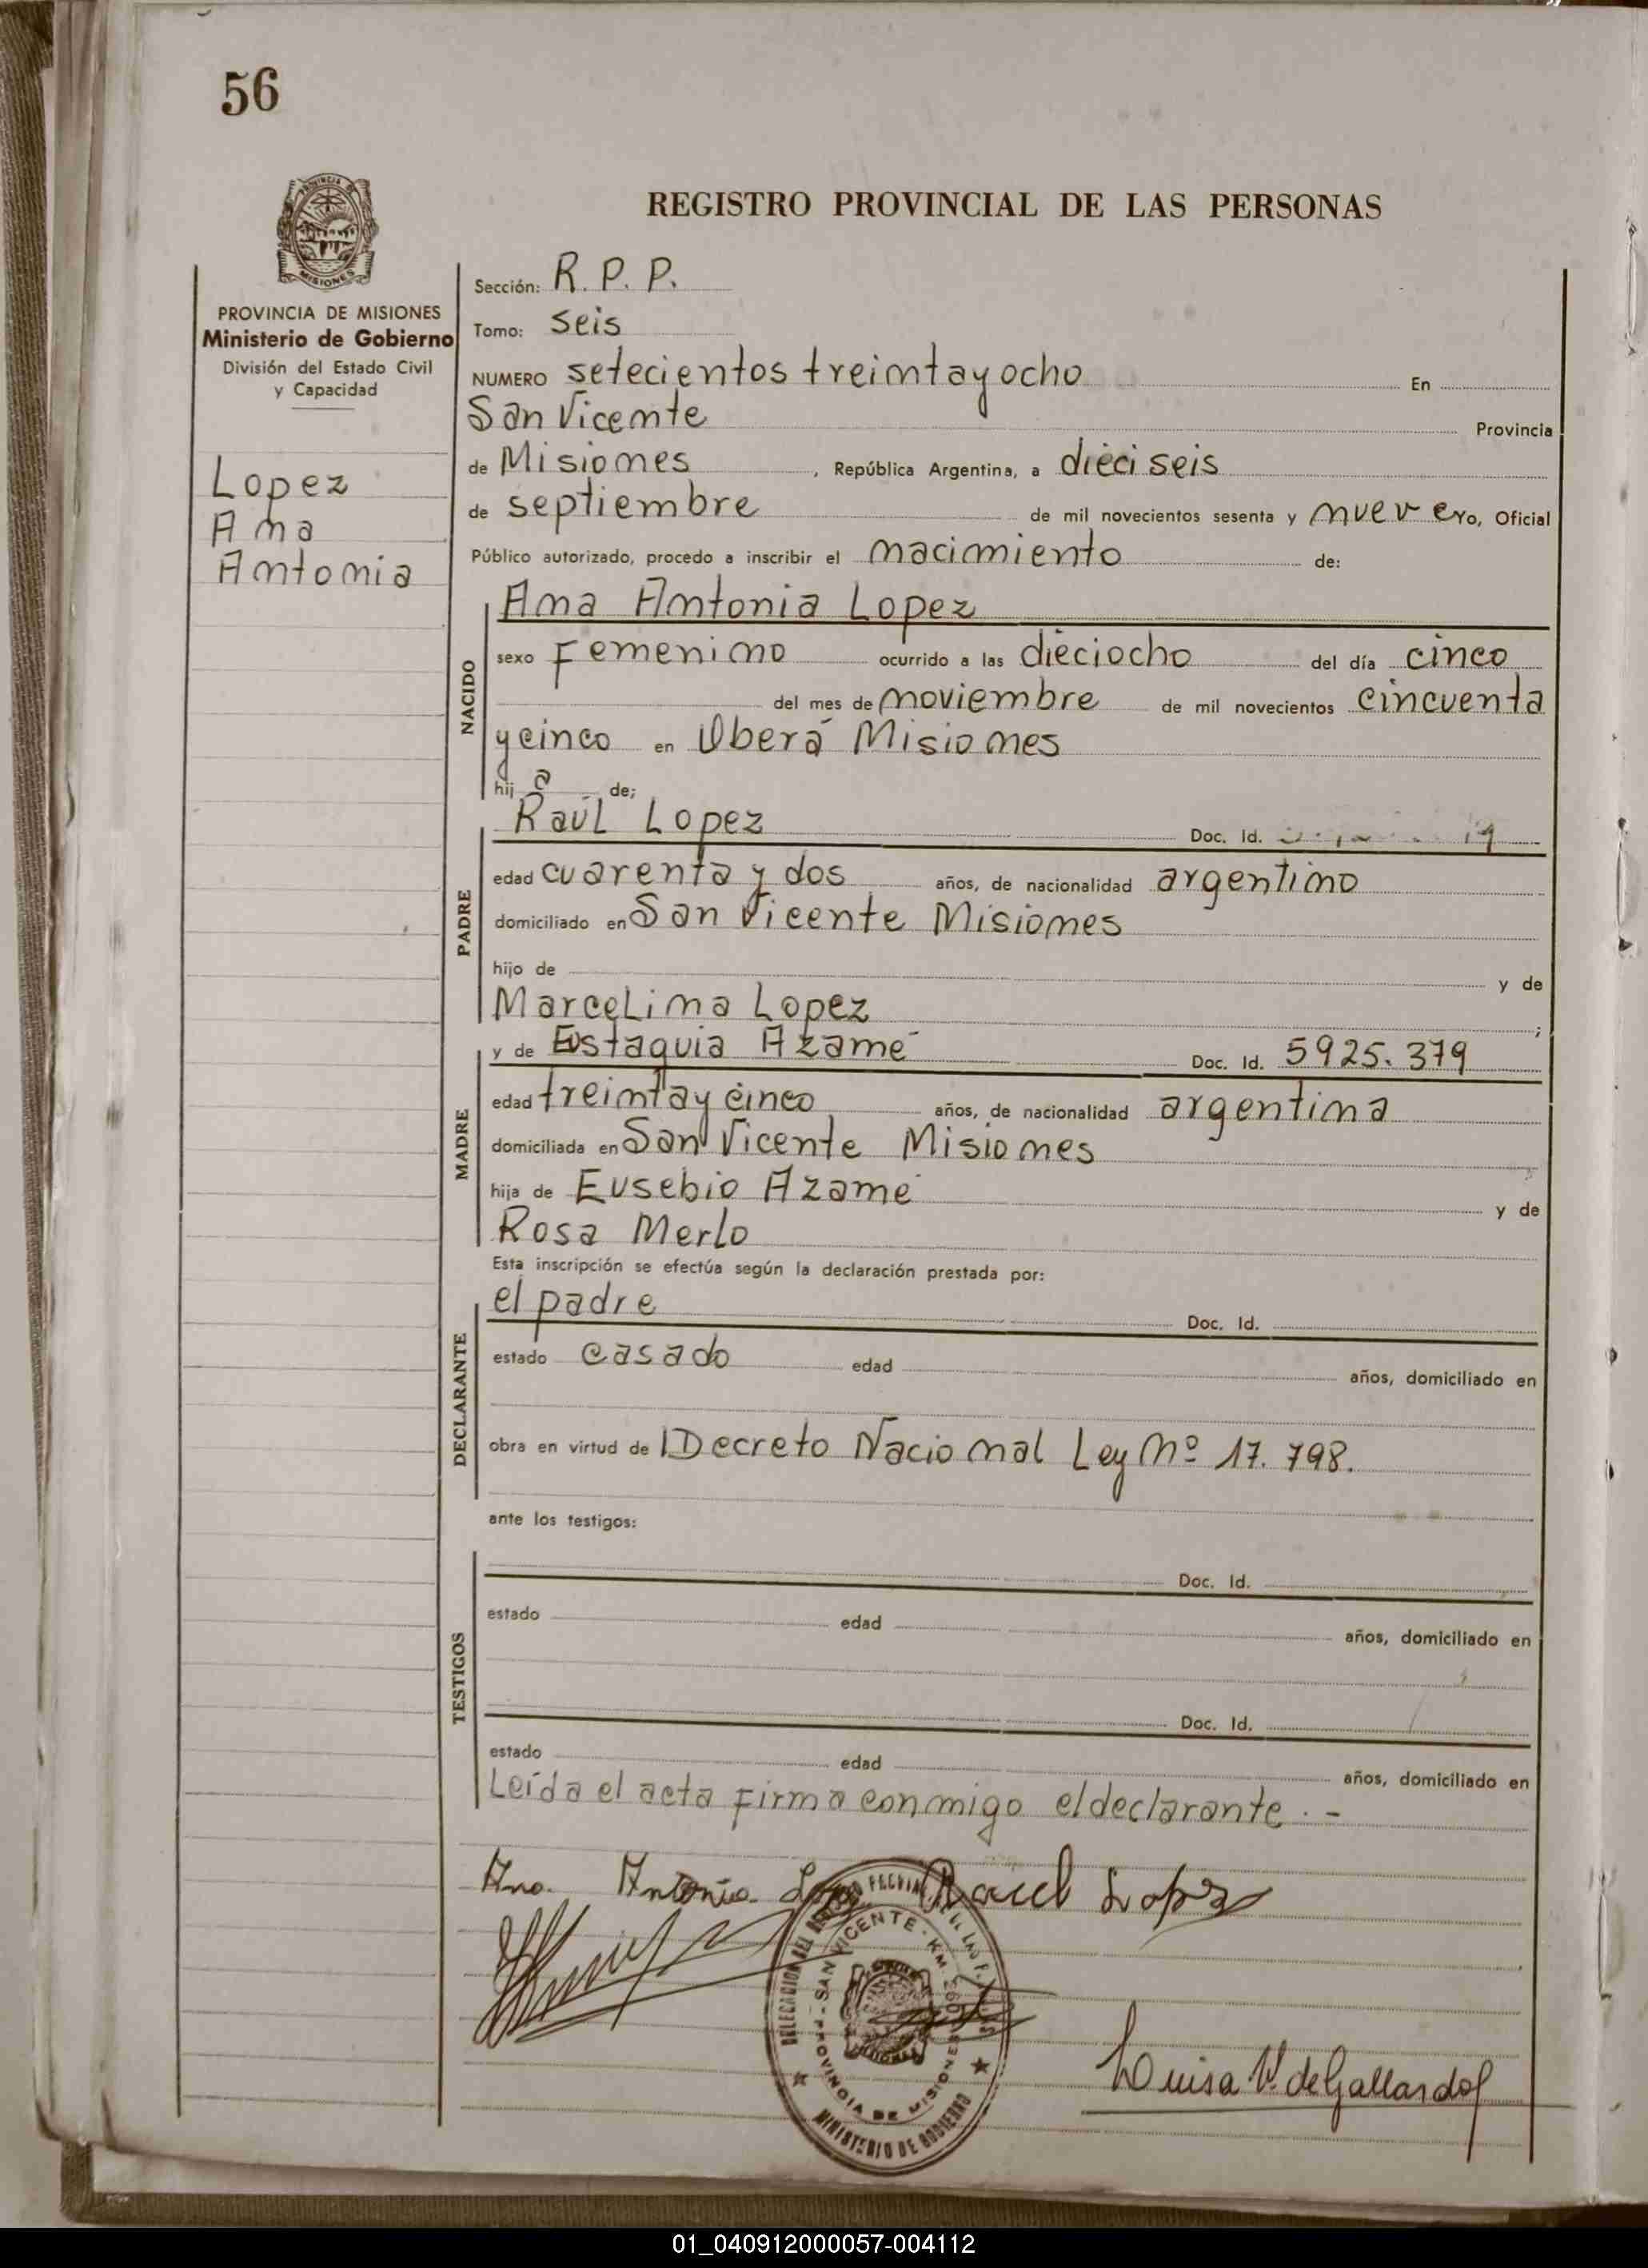 56
REGISTRO PROVINCIAL DE LAS PERSONAS
PROVINCIA DE MISIONES
Ministerio de Gobierno
División del Estado Civil
y Capacidad
Lopez
Ana
Antonia
Sección: R. P. P.
Tomo: seis
NUMERO setecientos treinta y ocho En
San Vicente Provincia
de Misiones, República Argentina, a dieciseis
de septiembre de mil novecientos sesenta y nueve yo, Oficial
Público autorizado, procedo a inscribir el nacimiento de:
NACIDO
Ana Antonia Lopez
sexo Femenino ocurrido a las dieciocho del día cinco
del mes de noviembre de mil novecientos cincuenta
y cinco en Oberá Misiones
hij a de;
PADRE
Raúl Lopez Doc. Id.
edad cuarenta y dos años, de nacionalidad argentino
domiciliado en San Vicente Misiones
hijo de y de
Marcelina Lopez ;
MADRE
y de Eustaquia Azame Doc. Id. 5925.379
edad treinta y cinco años, de nacionalidad argentina
domiciliada en San Vicente Misiones
hija de Eusebio Azame y de
Rosa Merlo
Esta inscripción se efectúa según la declaración prestada por:
DECLARANTE
el padre Doc. Id.
estado casado edad años, domiciliado en
obra en virtud de Decreto Nacional Ley Nº 17.798.
ante los testigos:
TESTIGOS
Doc. Id.
estado edad años, domiciliado en
Doc. Id.
estado edad años, domiciliado en
Leída el acta firma conmigo el declarante.-
Ana Antonia Lopez Raul Lopez
SAN VICENTE - KM.
PROVINCIA DE MISIONES
MINISTERIO DE GOBIERNO
Luisa V. de Gallardo
01_040912000057-004112